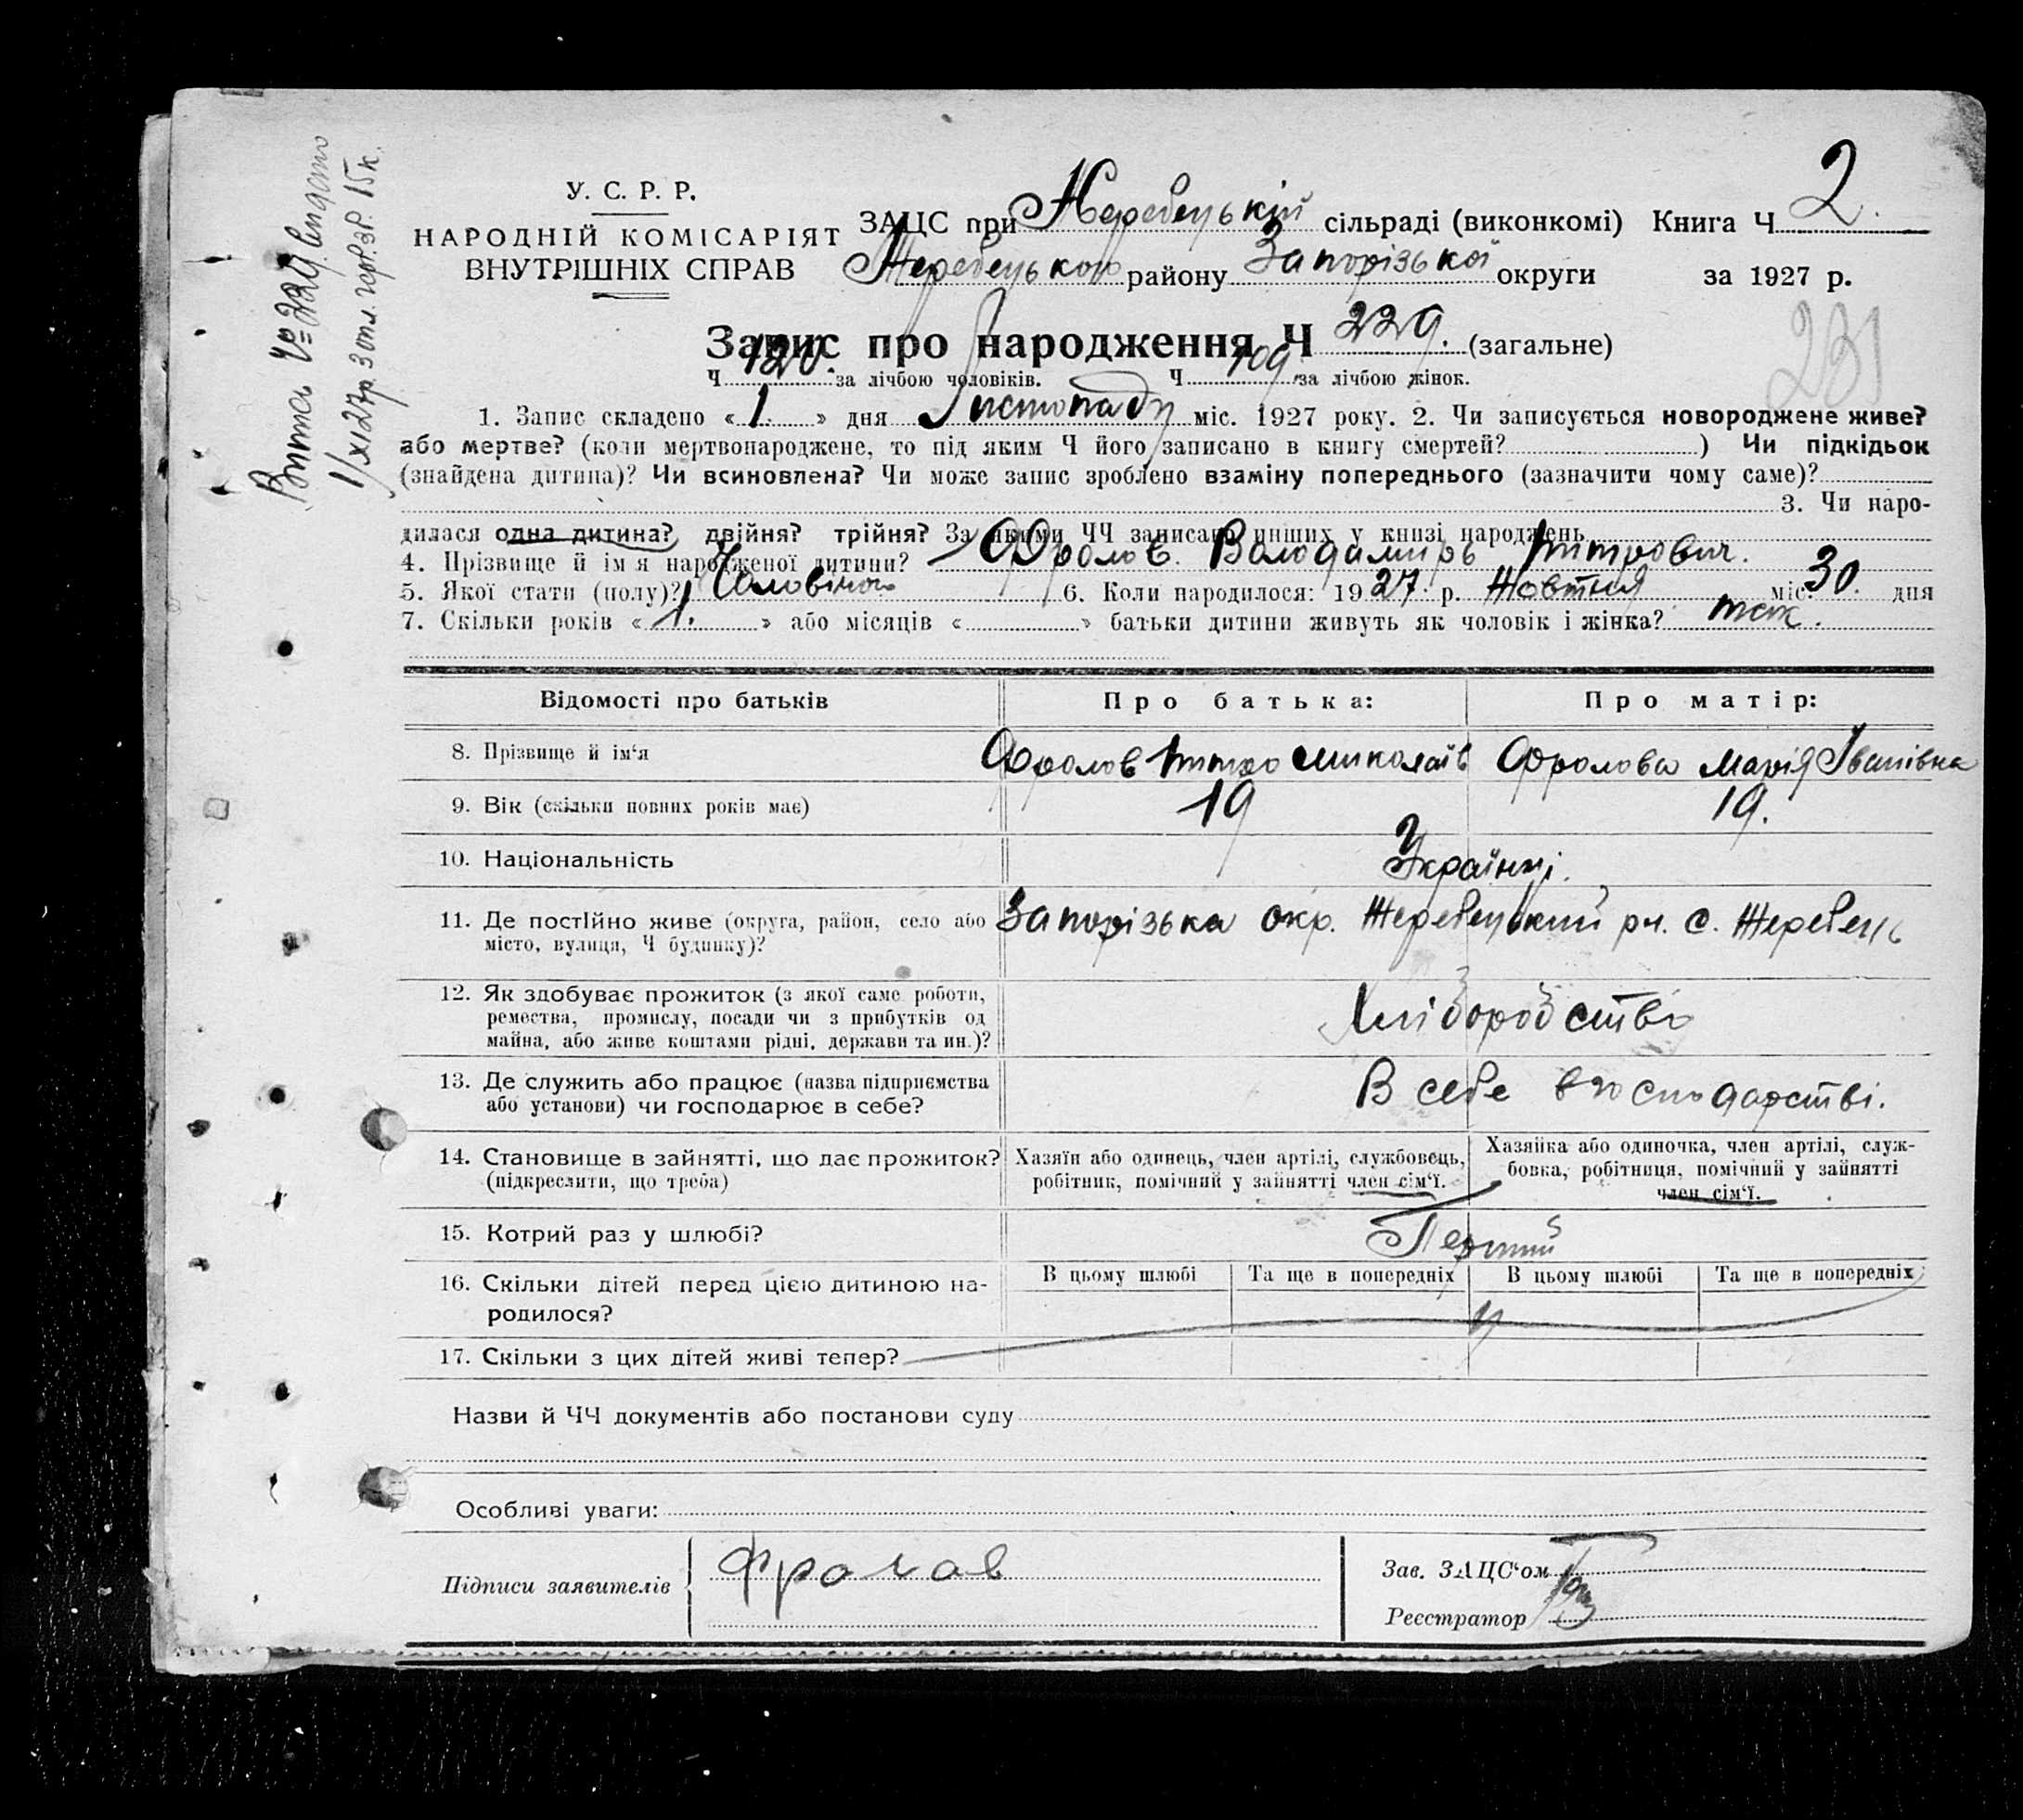 Витяг № 229 видано
1/XI 27р. Зопл. герб. зб. 15 к.
2.
У. С. Р. Р.
НАРОДНІЙ КОМІСАРІЯТ
ВНУТРІШНІХ СПРАВ
ЗАЦС при Жеребецькій сільраді (виконкомі) Книга Ч
Жеребецького району Запорізької округи за 1927 р.
Запис про народження Ч 229. (загальне)
231
Ч 120. за лічбою чоловіків. Ч 109 за лічбою жінок.
1. Запис складено «1.» дня Листопаду міс. 1927 року. 2. Чи записується новороджене живе?
або мертве? (коли мертвонароджене, то під яким Ч його записано в книгу смертей? ) Чи підкідьок
(знайдена дитина)? Чи всиновлена? Чи може запис зроблено взаміну попереднього (зазначити чому саме)?
3. Чи наро-
дилася одна дитина? двійня? трійня? За якими ЧЧ записано инших у книзі народжень
4. Прізвище й ім'я народженої дитини? Фролов Володимирь Митрович.
5. Якої стати (полу)? Чоловічої 6. Коли народилося: 1927. р. Жовтня міс. 30. дня
7. Скільки років «1.» або місяців « » батьки дитини живуть як чоловік і жінка? так.
Відомості про батьків Про батька: Про матір:
8. Прізвище й ім'я Фролов Митро Миколаїв Фролова Марія Іванівна
9. Вік (скільки повних років має) 19 19.
10. Національність Українці.
11. Де постійно живе (округа, район, село або
місто, вулиця, Ч будинку)? Запорізька окр. Жеребецький рн. с. Жеребець
12. Як здобуває прожиток (з якої саме роботи,
ремества, промислу, посади чи з прибутків од
майна, або живе коштами рідні, держави та ин.)? Хліборобство
13. Де служить або працює (назва підприємства
або установи) чи господарює в себе? В себе в господарстві.
14. Становище в зайнятті, що дає прожиток?
(підкреслити, що треба)
Хазяїн або одинець, член артілі, службовець,
робітник, помічний у зайнятті член сім'ї.
Хазяйка або одиночка, член артілі, служ-
бовка, робітниця, помічний у зайнятті
член сім'ї.
15. Котрий раз у шлюбі? Перший
16. Скільки дітей перед цією дитиною на-
родилося?
В цьому шлюбі Та ще в попередніх В цьому шлюбі Та ще в попередніх
17. Скільки з цих дітей живі тепер?
Назви й ЧЧ документів або постанови суду
Особливі уваги:
Підписи заявителів Фролов
Зав. ЗАЦС'ом
Реєстратор